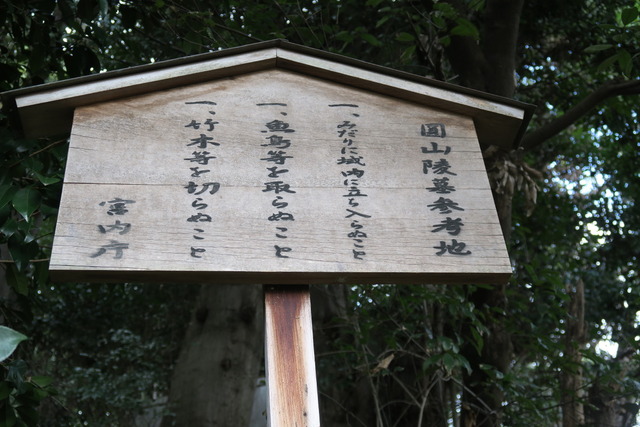 圓山陵墓参考地
一、みだりに域内に立ち入らぬこと
一、魚鳥等を取らぬこと
一、竹木等を切らぬこと
宮内庁